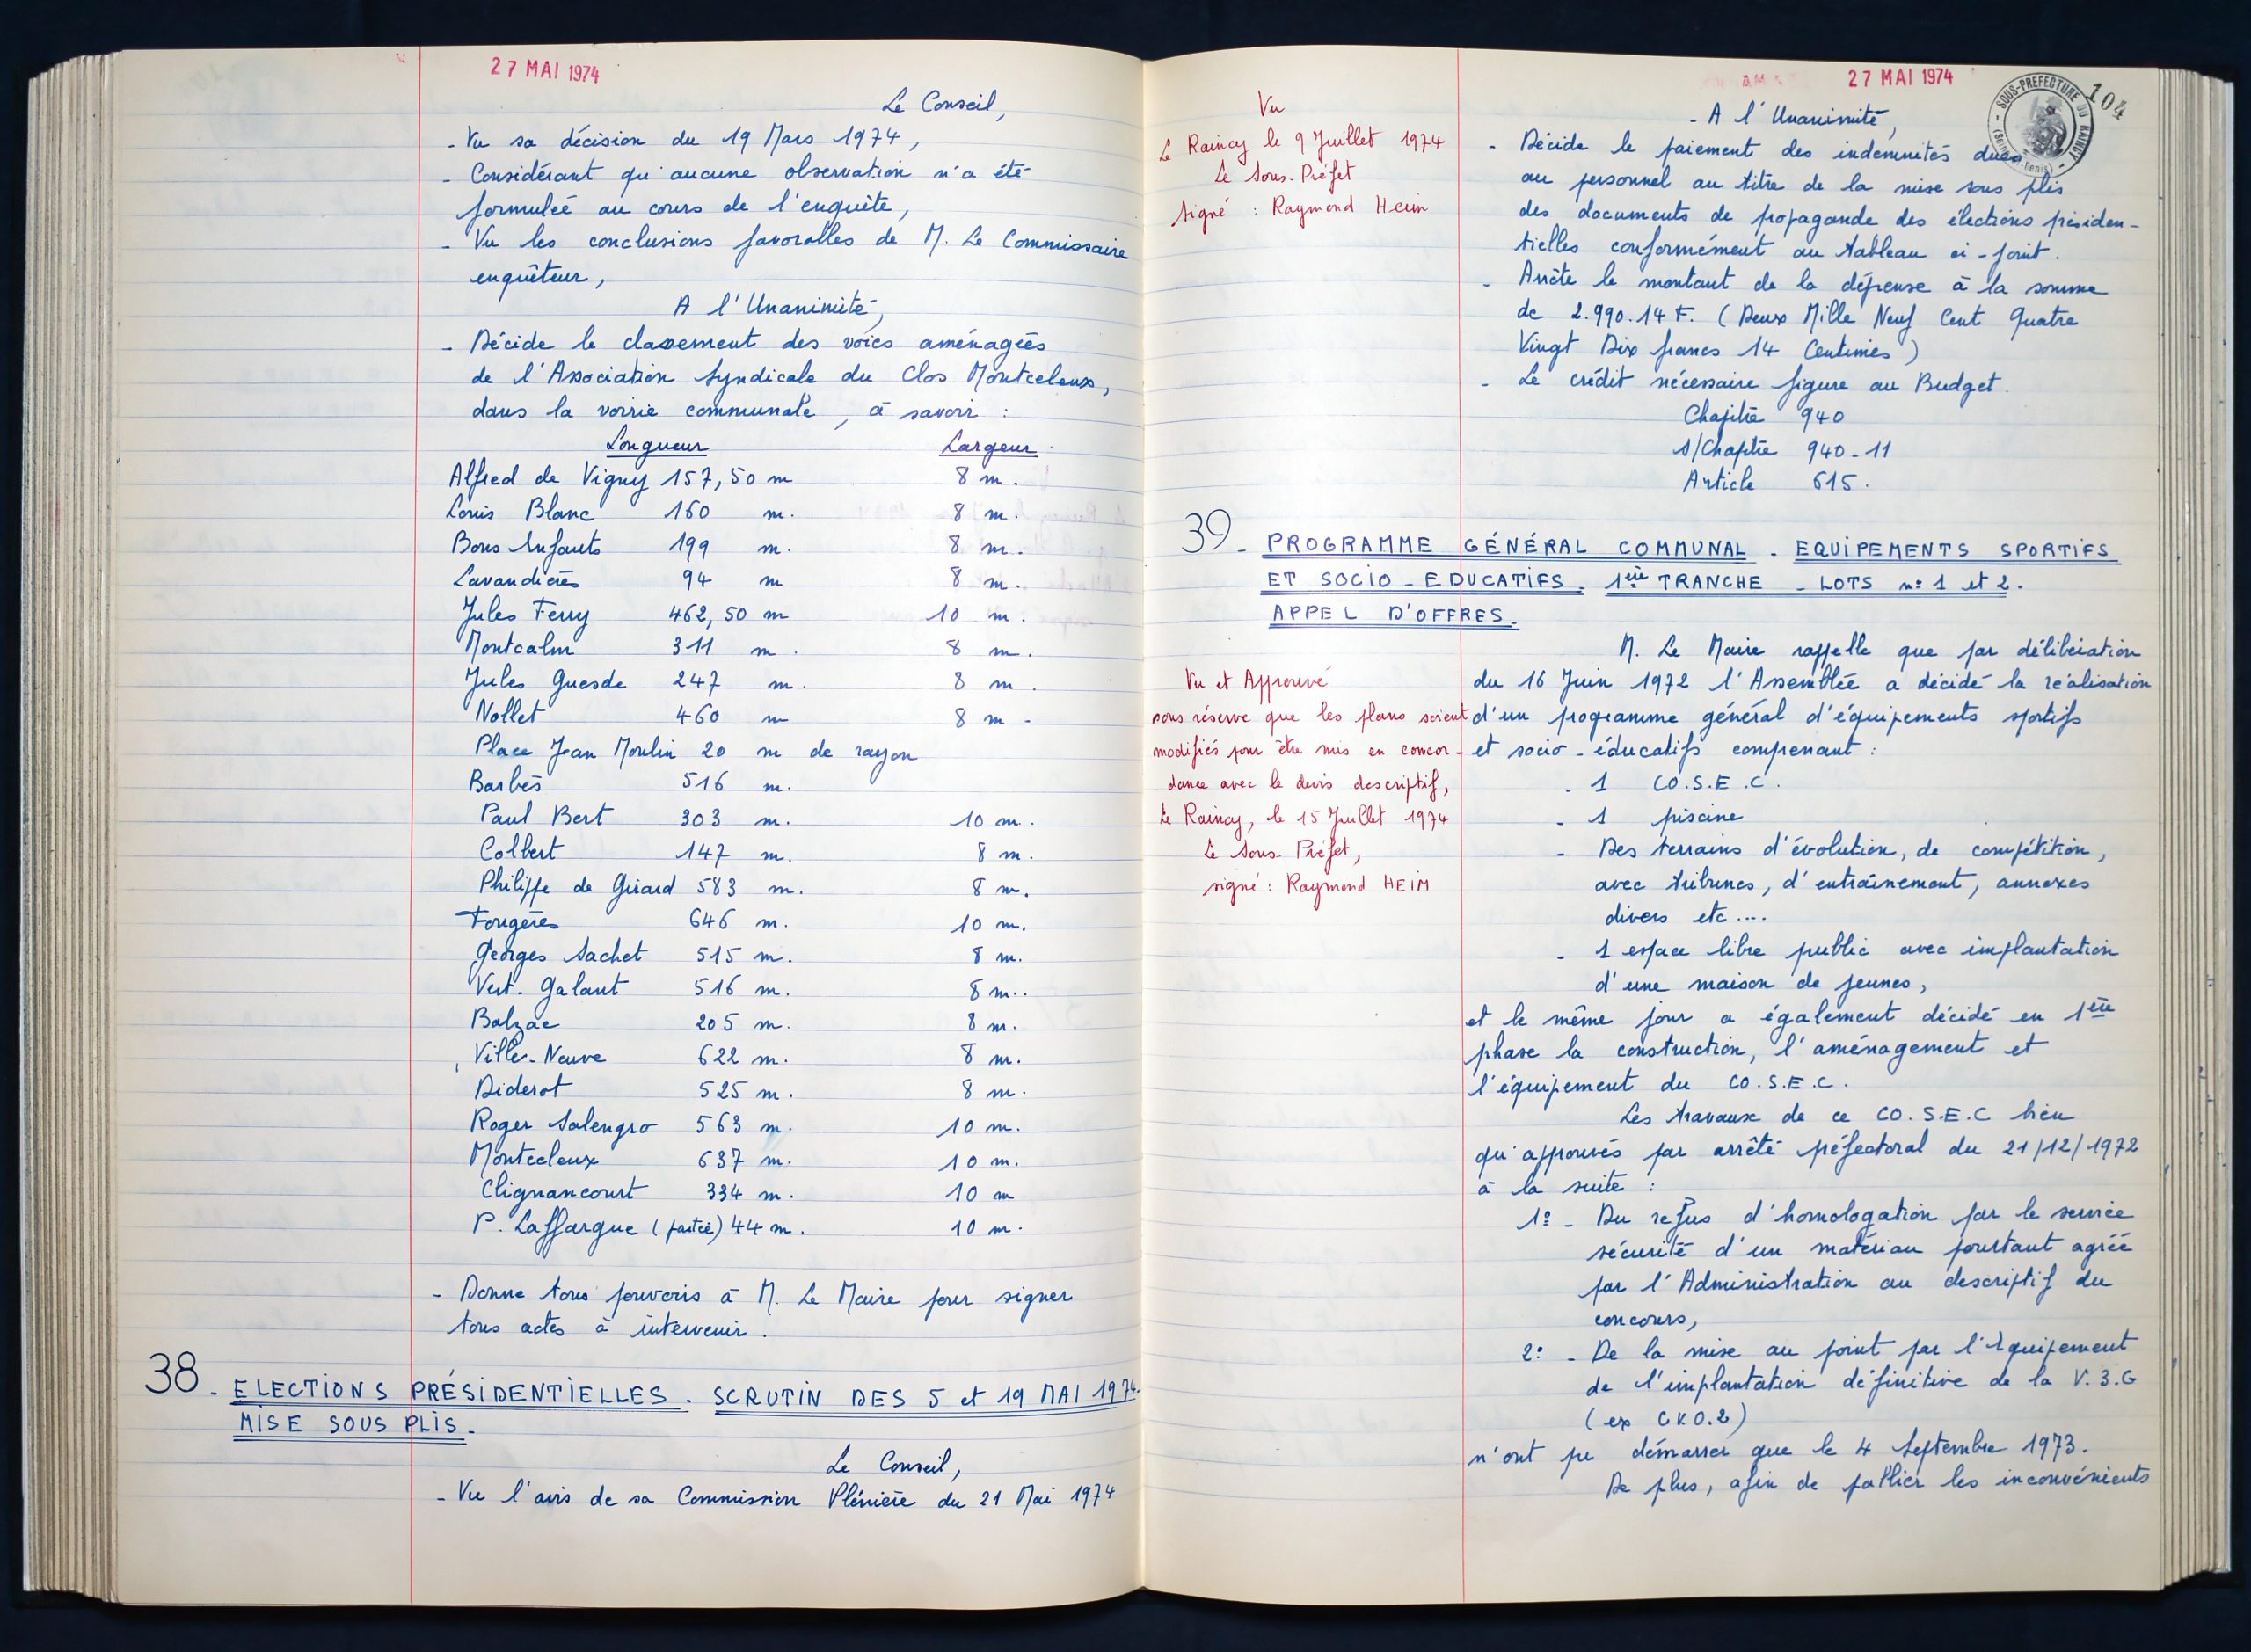 27 MAI 1974
Le Conseil,
- Vu sa décision du 19 Mars 1974,
- Considérant qu'aucune observation n'a été
formulée au cours de l'enquête,
- Vu les conclusions favorables de M. Le Commissaire
enquêteur,
A l'Unanimité,
- Décide le classement des voies aménagées
de l'Association Syndicale du Clos Montceleux,
dans la voirie communale, à savoir :
Longueur Largeur
Alfred de Vigny 157,50 m 8 m.
Louis Blanc 160 m. 8 m.
Bons Enfants 199 m. 8 m.
Lavandières 94 m 8 m.
Jules Ferry 462,50 m 10 m.
Montcalm 311 m. 8 m.
Jules Guesde 247 m. 8 m.
Nollet 460 m 8 m.
Place Jean Moulin 20 m de rayon
Barbès 516 m.
Paul Bert 303 m. 10 m.
Colbert 147 m. 8 m.
Philippe de Girard 583 m. 8 m.
Fougères 646 m. 10 m.
Georges Sachet 515 m. 8 m.
Vert-Galant 516 m. 8 m..
Balzac 205 m. 8 m.
Ville-Neuve 622 m. 8 m.
Diderot 525 m. 8 m.
Roger Salengro 563 m. 10 m.
Montceleux 637 m. 10 m.
Clignancourt 334 m. 10 m
P. Laffargue (partie) 44 m. 10 m.
- Donne tous pouvoirs à M. Le Maire pour signer
tous actes à intervenir.
38 - ELECTIONS PRÉSIDENTIELLES. SCRUTIN DES 5 et 19 MAI 1974.
MISE SOUS PLIS.
Le Conseil,
- Vu l'avis de sa Commission Plénière du 21 Mai 1974
27 MAI 1974
SOUS-PREFECTURE DU RAINCY
104
Vu
Le Raincy le 9 Juillet 1974
Le Sous-Préfet
signé : Raymond Heim
- A l'Unanimité,
- Décide le paiement des indemnités dues
au personnel au titre de la mise sous plis
des documents de propagande des élections présiden-
tielles conformément au tableau ci-joint.
- Arrête le montant de la dépense à la somme
de 2.990.14 F. (Deux Mille Neuf Cent Quatre
Vingt Dix francs 14 Centimes)
- Le crédit nécessaire figure au Budget.
Chapitre 940
S/Chapitre 940-11
Article 615.
39 - PROGRAMME GÉNÉRAL COMMUNAL - EQUIPEMENTS SPORTIFS
ET SOCIO-EDUCATIFS. 1ère TRANCHE - LOTS n° 1 et 2.
APPEL D'OFFRES.
Vu et Approuvé
sous réserve que les plans soient
modifiés pour être mis en concor-
dance avec le devis descriptif,
Le Raincy, le 15 Juillet 1974
Le Sous-Préfet,
signé : Raymond HEIM
M. Le Maire rappelle que par délibération
du 16 Juin 1972 l'Assemblée a décidé la réalisation
d'un programme général d'équipements sportifs
et socio-éducatifs comprenant :
- 1 CO.S.E.C.
- 1 piscine
- Des terrains d'évolution, de compétition,
avec tribunes, d'entraînement, annexes
divers etc....
- 1 espace libre public avec implantation
d'une maison de jeunes,
et le même jour a également décidé en 1ère
phase la construction, l'aménagement et
l'équipement du CO.S.E.C.
Les travaux de ce CO.S.E.C bien
qu'approuvés par arrêté préfectoral du 21/12/1972
à la suite :
1° - Du refus d'homologation par le service
sécurité d'un matériau pourtant agréé
par l'Administration au descriptif du
concours,
2° - De la mise au point par l'Equipement
de l'implantation définitive de la V.3.G
(ex CV.O.2)
n'ont pu démarrer que le 4 Septembre 1973.
De plus, afin de pallier les inconvénients